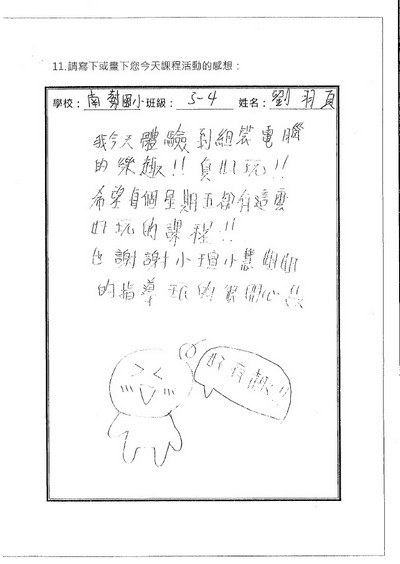 11.請寫下或畫下您今天課程活動的感想：
學校：南勢國小班級：3-4 姓名：劉羽
我今天體驗到組裝電腦
的樂趣!!真好玩!!
希望每個星期五都有這麼
好玩的課程!!
也謝謝小瑄小慧姐姐
的指導 玩的很開心
好好 !!